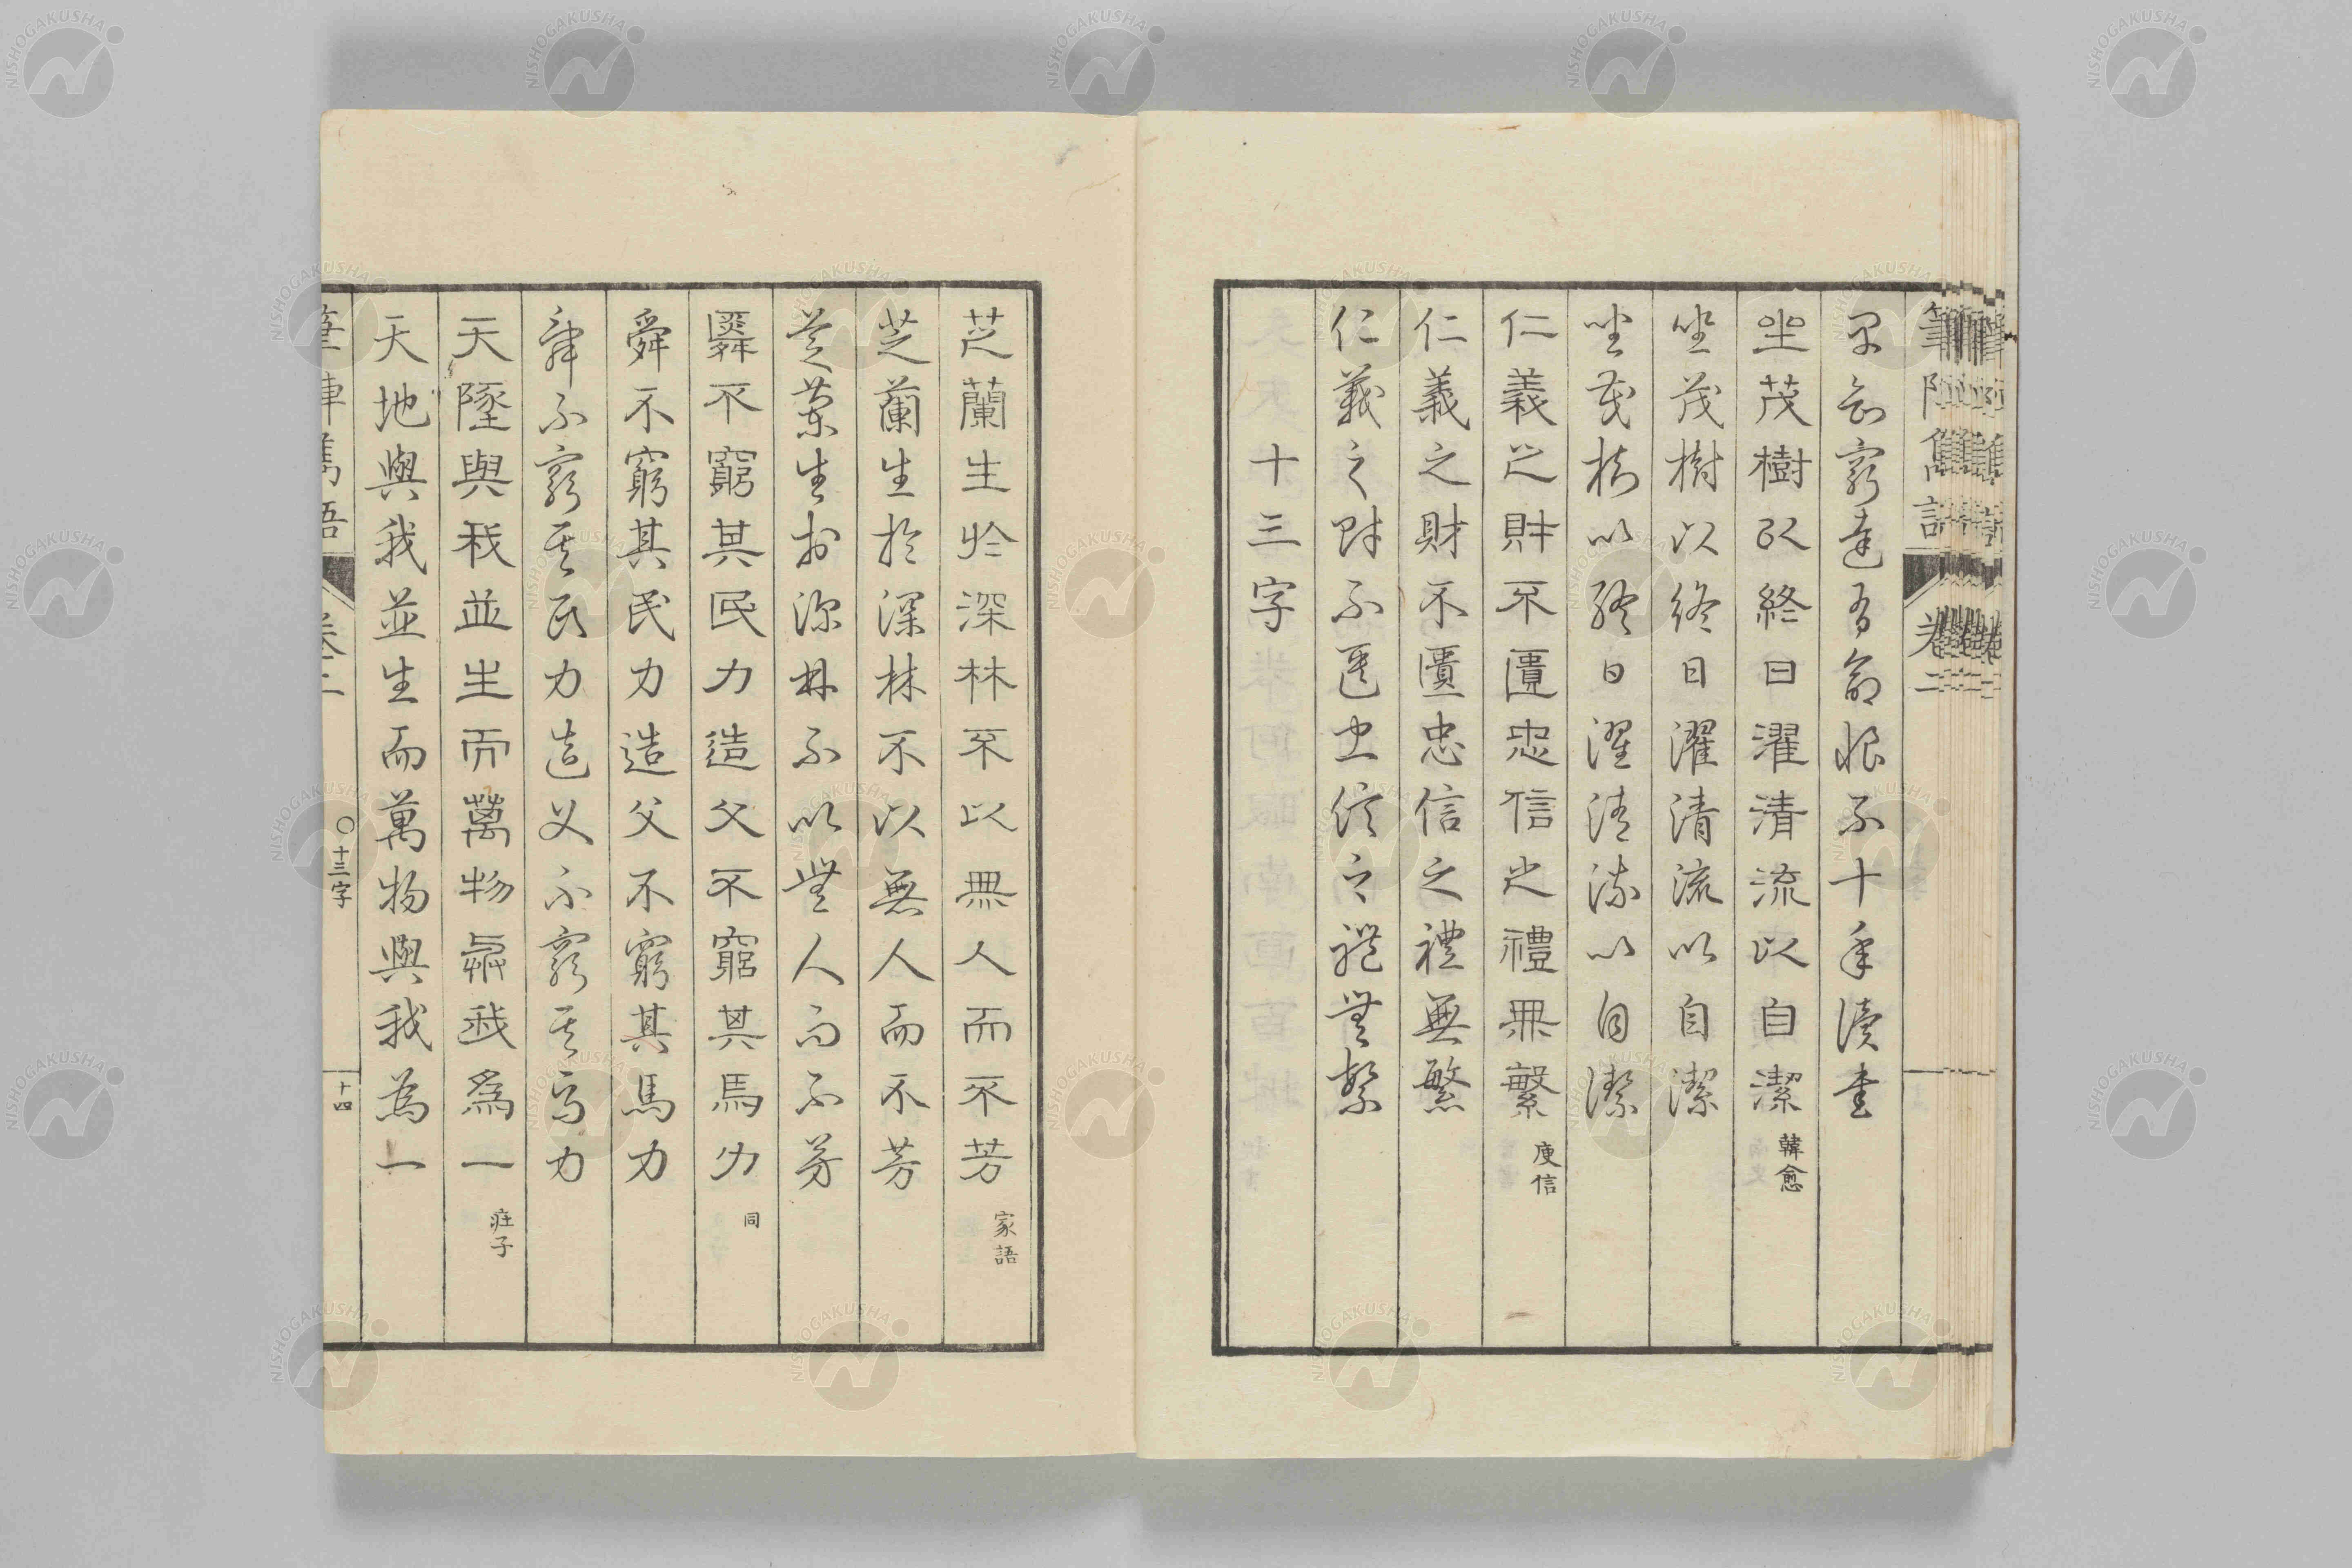 筆陣雋語 卷二
早知窮達有命恨不十年讀書
坐茂樹以終日濯清流以自潔 韓愈
坐茂樹以終日濯清流以自潔
坐茂樹以終日濯清流以自潔
仁義之財不匱忠信之禮無繁 庾信
仁義之財不匱忠信之禮無繁
仁義之財不匱忠信之禮無繁
十三字
芝蘭生於深林不以無人而不芳 家語
芝蘭生於深林不以無人而不芳
芝蘭生於深林不以無人而不芳
舜不窮其民力造父不窮其馬力 同
舜不窮其民力造父不窮其馬力
舜不窮其民力造父不窮其馬力
天墬與我並生而萬物與我爲一 莊子
天地與我並生而萬物與我為一
筆陣雋語 卷二 〇十三字 十四
NISHOGAKUSHA